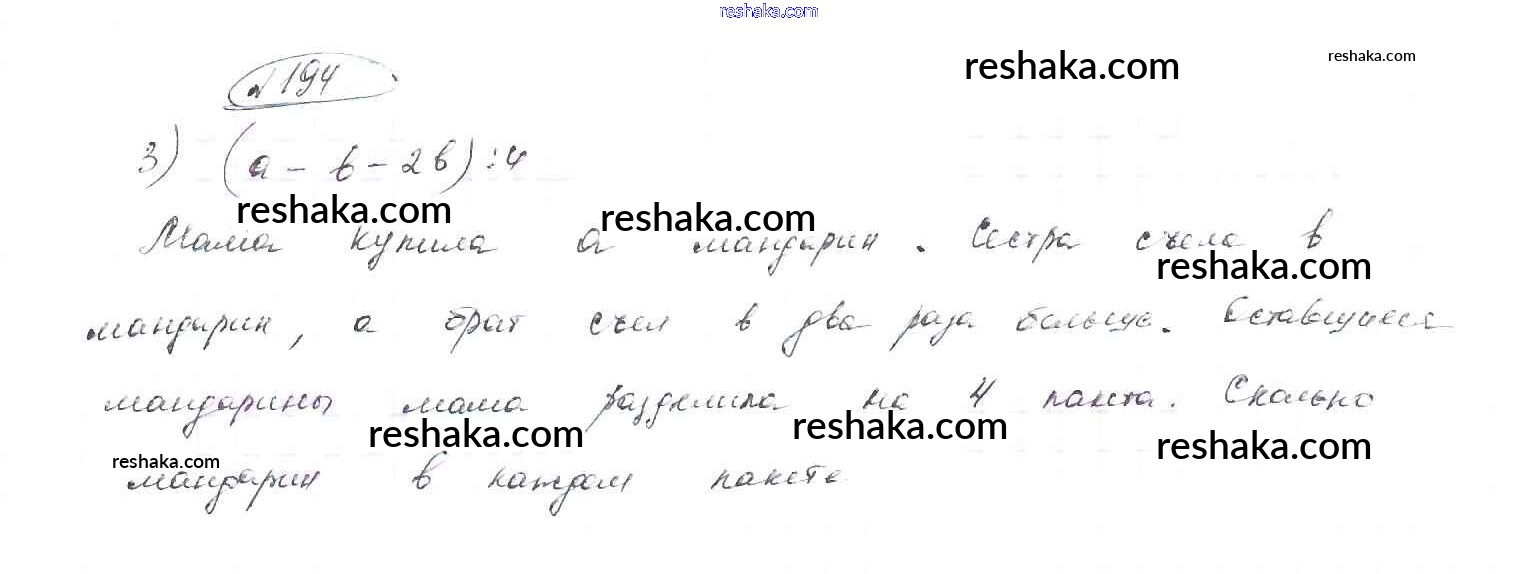 reshaka.com
№194
reshaka.com
reshaka.com
3) (a - b - 2b) : 4
reshaka.com
reshaka.com
Мама купила a мандарин. Сестра съела b
reshaka.com
мандарин, а брат съел в два раза больше. Оставшиеся
мандарины мама разделила на 4 пакета. Сколько
reshaka.com
reshaka.com
reshaka.com
reshaka.com
мандарин в каждом пакете